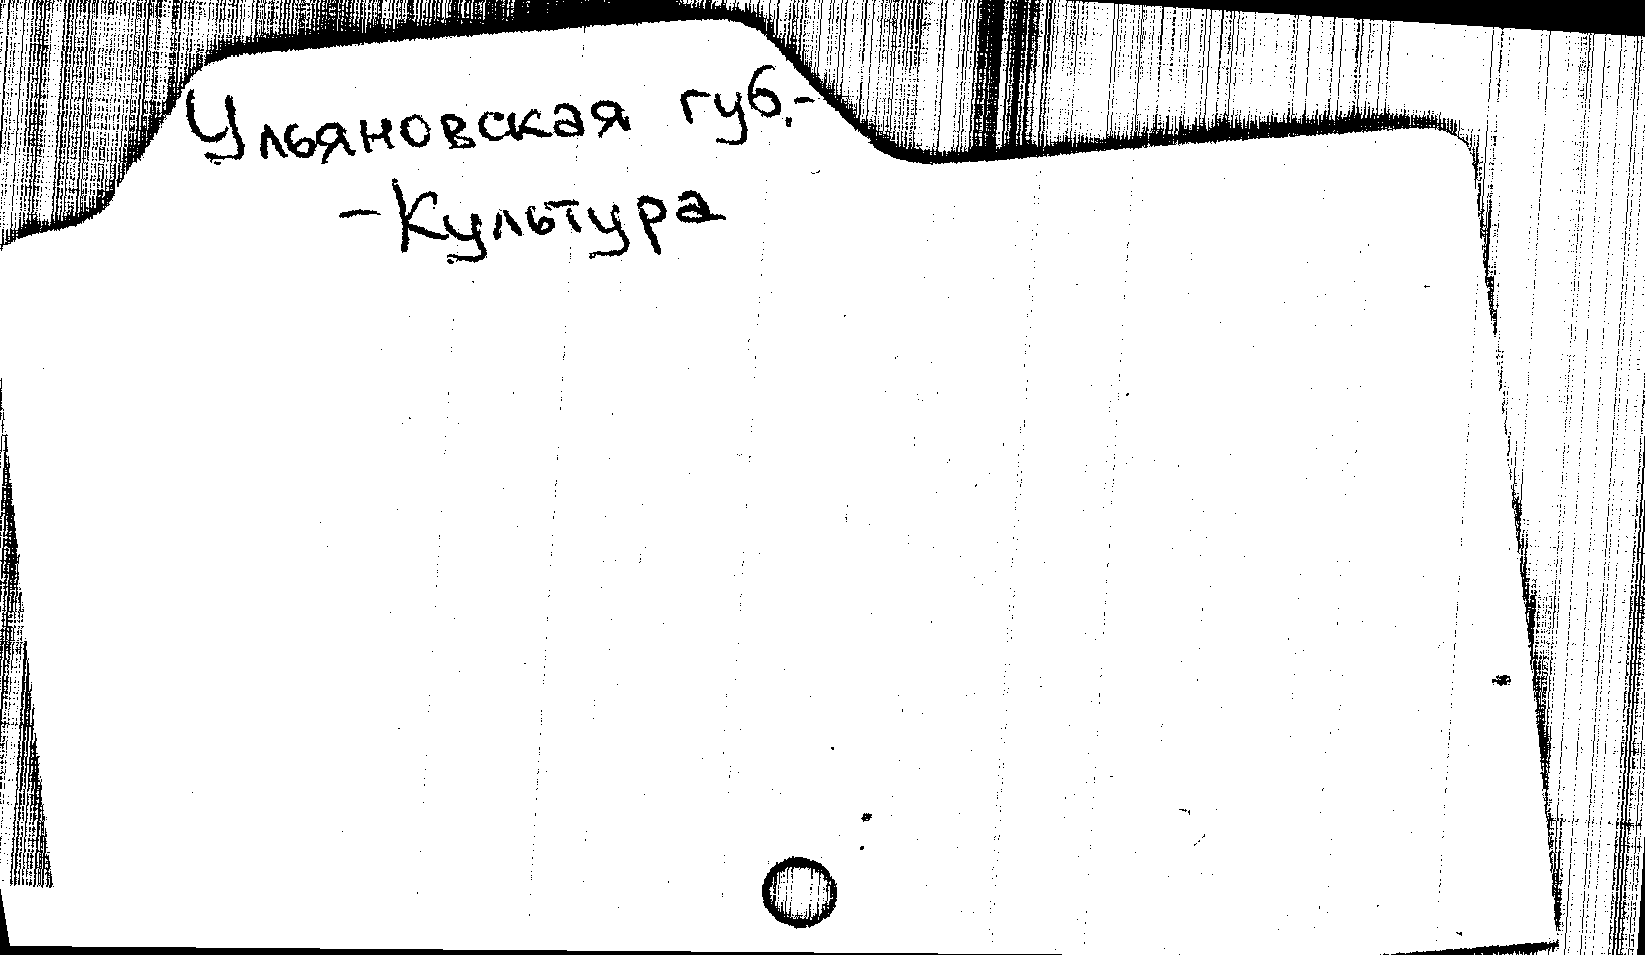 Ульяновская губ.-
-Культура